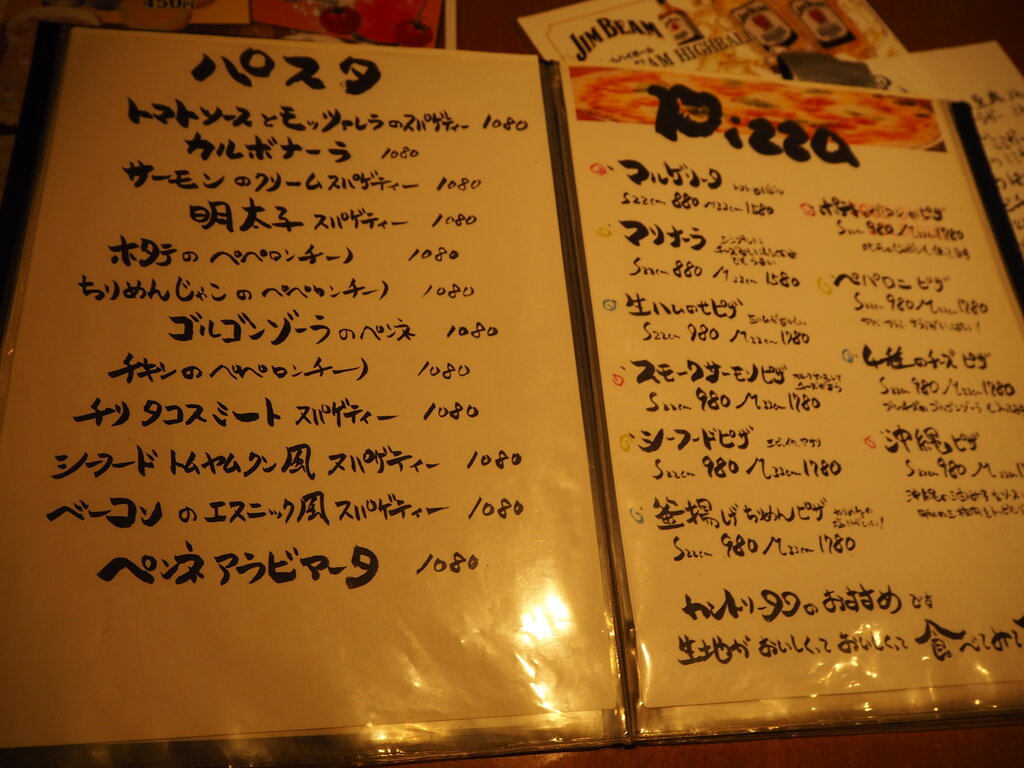 450円
JIM BEAM
BEAM HIGHBALL
パスタ
トマトソースとモッツァレラのスパゲティー 1080
カルボナーラ 1080
サーモンのクリームスパゲティー 1080
明太子スパゲティー 1080
ホタテのペペロンチーノ 1080
ちりめんじゃこのペペロンチーノ 1080
ゴルゴンゾーラのペンネ 1080
チキンのペペロンチーノ 1080
チリタコスミートスパゲティー 1080
シーフードトムヤムクン風スパゲティー 1080
ベーコンのエスニック風スパゲティー 1080
ペンネアラビアータ 1080
Pizza
マルゲリータ
S22cm 880 M32cm 1580
マリナーラ
S22cm 880 M32cm 1580
生ハムのせピザ
S22cm 980 M32cm 1780
スモークサーモンピザ
S22cm 980 M32cm 1780
シーフードピザ エビ,イカ,アサリ
S22cm 980 M32cm 1780
釜揚げちりめんピザ
S22cm 980 M32cm 1780
ピザ
S22cm 980 M32cm 1780
ペパロニピザ
S22cm 980 M32cm 1780
4種のチーズピザ
S22cm 980 M32cm 1780
沖縄ピザ
S22cm 980 M32cm
カントリータウのおすすめです
生地がおいしくっておいしくって食べてみて